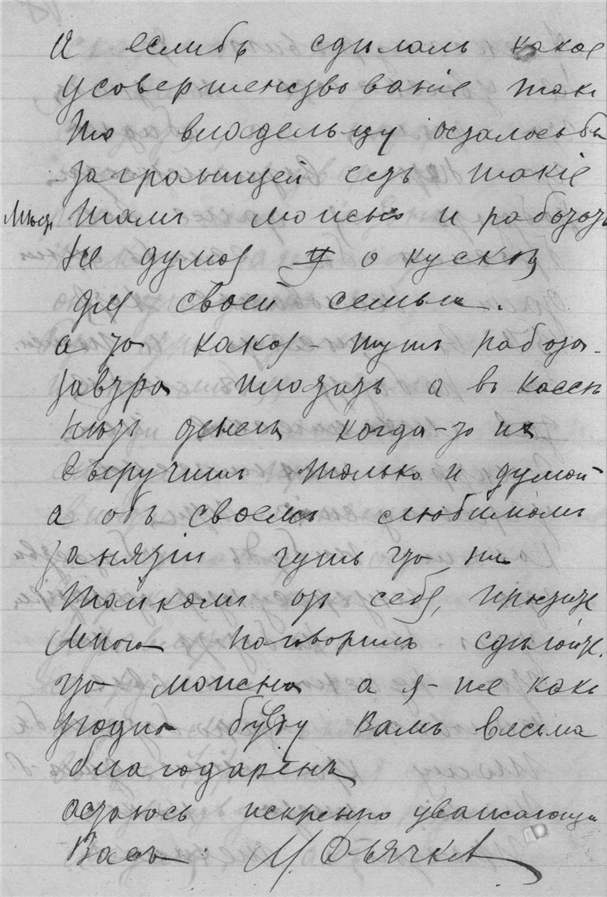 А еслибъ сдилалъ какое
усовершенствованіе так
то владельцу осталосьбы
заграницей есть такіе
мысл тамъ можно и работать
Не думоя о куске
для своей семьи.
а то какая-тутъ работа.
завтра платить а въ кассе
нютъ денегъ когда-то их
выручишъ только и думой
а объ своемъ любимомъ
занятіи чуть что не
тайкомъ отъ себя, Простите
много поговорилъ сдилойте.
что можно а я-же какъ
угодно буду Вамъ весьма
благодаренъ
остаюсь искренно уважающи
Васъ М. Дьячков